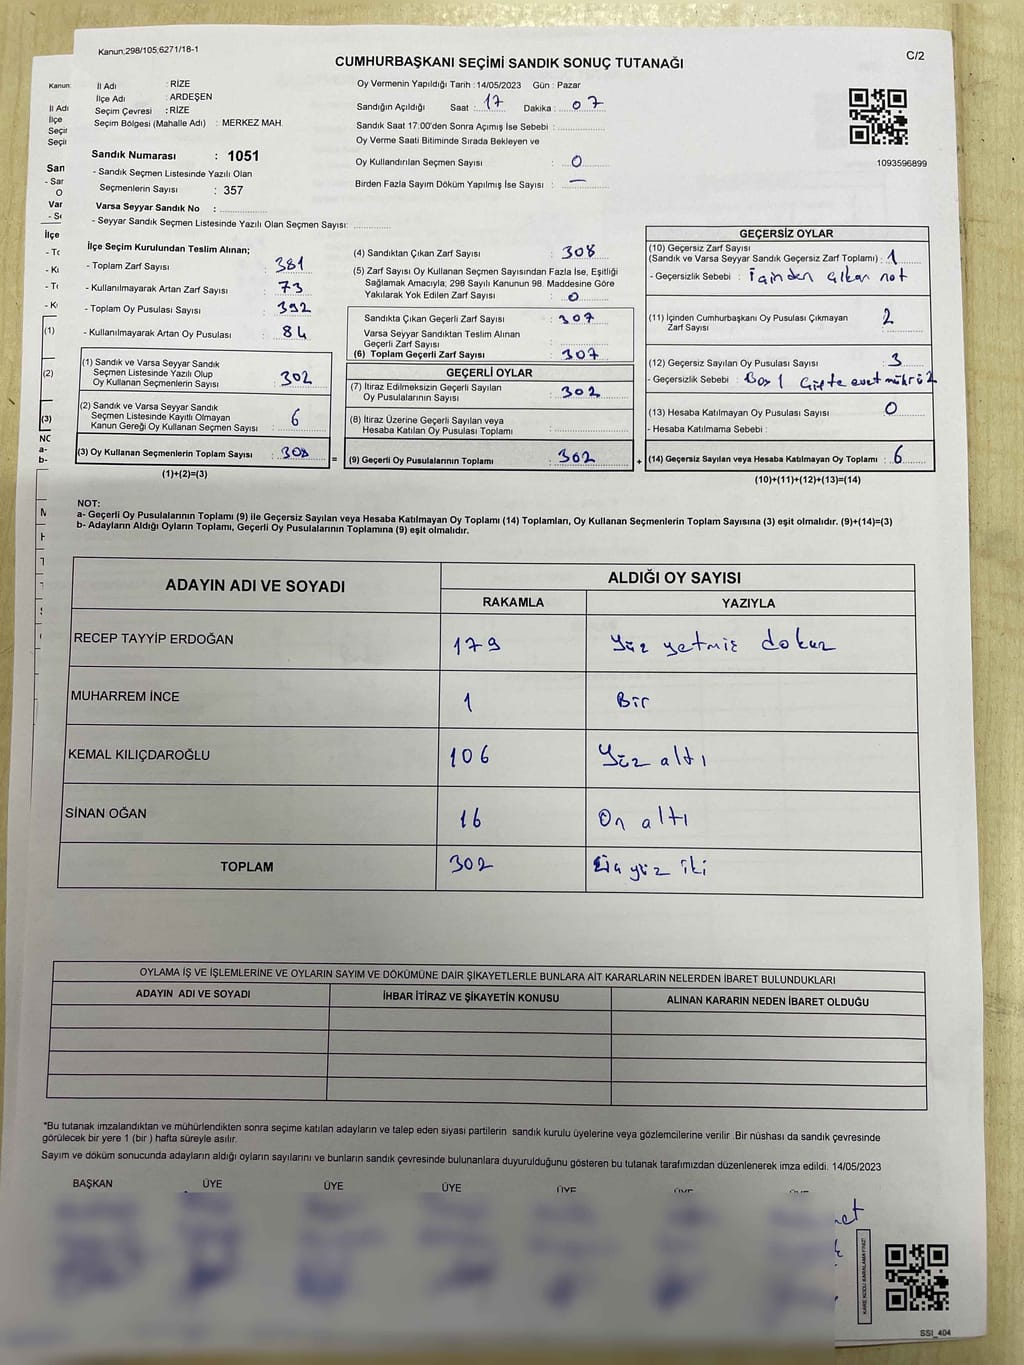 Kanun;298/105;6271/18-1
C/2
CUMHURBAŞKANI SEÇİMİ SANDIK SONUÇ TUTANAĞI
İl Adı : RİZE
İlçe Adı : ARDEŞEN
Seçim Çevresi : RİZE
Seçim Bölgesi (Mahalle Adı) : MERKEZ MAH.
Oy Vermenin Yapıldığı Tarih : 14/05/2023 Gün : Pazar
Sandığın Açıldığı Saat : 17 Dakika : 07
Sandık Saat 17:00'den Sonra Açımış İse Sebebi :
Oy Verme Saati Bitiminde Sırada Bekleyen ve
Oy Kullandırılan Seçmen Sayısı : 0
Birden Fazla Sayım Döküm Yapılmış İse Sayısı : —
1093596899
Sandık Numarası : 1051
- Sandık Seçmen Listesinde Yazılı Olan
Seçmenlerin Sayısı : 357
Varsa Seyyar Sandık No :
- Seyyar Sandık Seçmen Listesinde Yazılı Olan Seçmen Sayısı:
İlçe Seçim Kurulundan Teslim Alınan;
- Toplam Zarf Sayısı : 381
- Kullanılmayarak Artan Zarf Sayısı : 73
- Toplam Oy Pusulası Sayısı : 392
- Kullanılmayarak Artan Oy Pusulası : 84
(1) Sandık ve Varsa Seyyar Sandık
Seçmen Listesinde Yazılı Olup
Oy Kullanan Seçmenlerin Sayısı : 302
(2) Sandık ve Varsa Seyyar Sandık
Seçmen Listesinde Kayıtlı Olmayan
Kanun Gereği Oy Kullanan Seçmen Sayısı : 6
(3) Oy Kullanan Seçmenlerin Toplam Sayısı : 308
(1)+(2)=(3)
(4) Sandıktan Çıkan Zarf Sayısı : 308
(5) Zarf Sayısı Oy Kullanan Seçmen Sayısından Fazla İse, Eşitliği
Sağlamak Amacıyla; 298 Sayılı Kanunun 98. Maddesine Göre
Yakılarak Yok Edilen Zarf Sayısı : 0
Sandıkta Çıkan Geçerli Zarf Sayısı : 307
Varsa Seyyar Sandıktan Teslim Alınan
Geçerli Zarf Sayısı :
(6) Toplam Geçerli Zarf Sayısı : 307
GEÇERLİ OYLAR
(7) İtiraz Edilmeksizin Geçerli Sayılan
Oy Pusulalarının Sayısı : 302
(8) İtiraz Üzerine Geçerli Sayılan veya
Hesaba Katılan Oy Pusulası Toplamı :
= (9) Geçerli Oy Pusulalarının Toplamı : 302 +
GEÇERSİZ OYLAR
(10) Geçersiz Zarf Sayısı
(Sandık ve Varsa Seyyar Sandık Geçersiz Zarf Toplamı) : 1
- Geçersizlik Sebebi : İçinden çıkan not
(11) İçinden Cumhurbaşkanı Oy Pusulası Çıkmayan
Zarf Sayısı : 2
(12) Geçersiz Sayılan Oy Pusulası Sayısı : 3
- Geçersizlik Sebebi : Boş 1 Çifte evet mührü 2
(13) Hesaba Katılmayan Oy Pusulası Sayısı : 0
- Hesaba Katılmama Sebebi :
(14) Geçersiz Sayılan veya Hesaba Katılmayan Oy Toplamı : 6
(10)+(11)+(12)+(13)=(14)
NOT:
a- Geçerli Oy Pusulalarının Toplamı (9) ile Geçersiz Sayılan veya Hesaba Katılmayan Oy Toplamı (14) Toplamları, Oy Kullanan Seçmenlerin Toplam Sayısına (3) eşit olmalıdır. (9)+(14)=(3)
b- Adayların Aldığı Oyların Toplamı, Geçerli Oy Pusulalarının Toplamına (9) eşit olmalıdır.
ADAYIN ADI VE SOYADI ALDIĞI OY SAYISI
RAKAMLA YAZIYLA
RECEP TAYYİP ERDOĞAN 179 Yüz yetmiş dokuz
MUHARREM İNCE 1 Bir
KEMAL KILIÇDAROĞLU 106 Yüz altı
SİNAN OĞAN 16 On altı
TOPLAM 302 Üç yüz iki
OYLAMA İŞ VE İŞLEMLERİNE VE OYLARIN SAYIM VE DÖKÜMÜNE DAİR ŞİKAYETLERLE BUNLARA AİT KARARLARIN NELERDEN İBARET BULUNDUKLARI
ADAYIN ADI VE SOYADI İHBAR İTİRAZ VE ŞİKAYETİN KONUSU ALINAN KARARIN NEDEN İBARET OLDUĞU
*Bu tutanak imzalandıktan ve mühürlendikten sonra seçime katılan adayların ve talep eden siyasi partilerin sandık kurulu üyelerine veya gözlemcilerine verilir .Bir nüshası da sandık çevresinde
görülecek bir yere 1 (bir ) hafta süreyle asılır.
Sayım ve döküm sonucunda adayların aldığı oyların sayılarını ve bunların sandık çevresinde bulunanlara duyurulduğunu gösteren bu tutanak tarafımızdan düzenlenerek imza edildi. 14/05/2023
BAŞKAN ÜYE ÜYE ÜYE ÜYE
KARE KODU KARALAMAYINIZ!
SSI_404